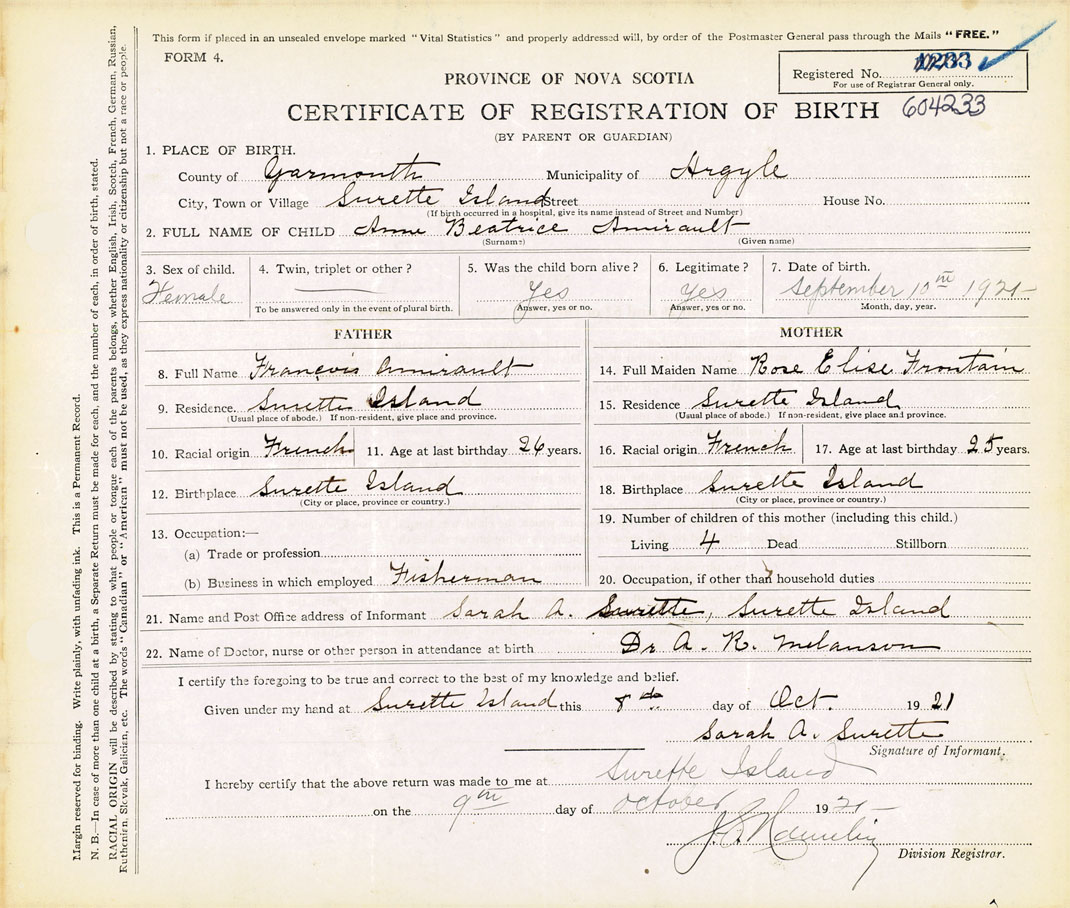 This form if placed in an unsealed envelope marked "Vital Statistics" and properly addressed will, by order of the Postmaster General pass through the Mails "FREE."
FORM 4.
Registered No.
For use of Registrar General only.
PROVINCE OF NOVA SCOTIA
CERTIFICATE OF REGISTRATION OF BIRTH 604233
(BY PARENT OR GUARDIAN)
1. PLACE OF BIRTH.
County of Yarmouth Municipality of Argyle
City, Town or Village Surette Island Street House No.
(If birth occurred in a hospital, give its name instead of Street and Number)
2. FULL NAME OF CHILD Anne Beatrice Amirault
(Surname) (Given name)
3. Sex of child. 4. Twin, triplet or other? 5. Was the child born alive? 6. Legitimate? 7. Date of birth.
Female Yes Yes September 10th 1921
To be answered only in the event of plural birth. Answer, yes or no. Answer, yes or no. Month, day, year.
FATHER
8. Full Name François Amirault
9. Residence. Surette Island
(Usual place of abode.) If non-resident, give place and province.
10. Racial origin French 11. Age at last birthday 26 years.
12. Birthplace Surette Island
(City or place, province or country.)
13. Occupation:—
(a) Trade or profession
(b) Business in which employed Fisherman
MOTHER
14. Full Maiden Name Rose Elise Frontain
15. Residence Surette Island
(Usual place of abode.) If non-resident, give place and province.
16. Racial origin French 17. Age at last birthday 25 years.
18. Birthplace Surette Island
(City or place, province or country.)
19. Number of children of this mother (including this child.)
Living 4 Dead Stillborn
20. Occupation, if other than household duties
21. Name and Post Office address of Informant Sarah A. Surette, Surette Island
22. Name of Doctor, nurse or other person in attendance at birth Dr A. R. Melanson
I certify the foregoing to be true and correct to the best of my knowledge and belief.
Given under my hand at Surette Island this 8th day of Oct. 1921
Sarah A. Surette
Signature of Informant.
I hereby certify that the above return was made to me at Surette Island
on the 9th day of October 1921
Division Registrar.
Margin reserved for binding. Write plainly, with unfading ink. This is a Permanent Record.
N. B.—In case of more than one child at a birth, a Separate Return must be made for each, and the number of each, in order of birth, stated.
RACIAL ORIGIN will be described by stating to what people or tongue each of the parents belongs, whether English, Irish, Scotch, French, German, Russian,
Ruthenian, Slovak, Galician, etc. The words "Canadian" or "American" must not be used, as they express nationality or citizenship but not a race or people.